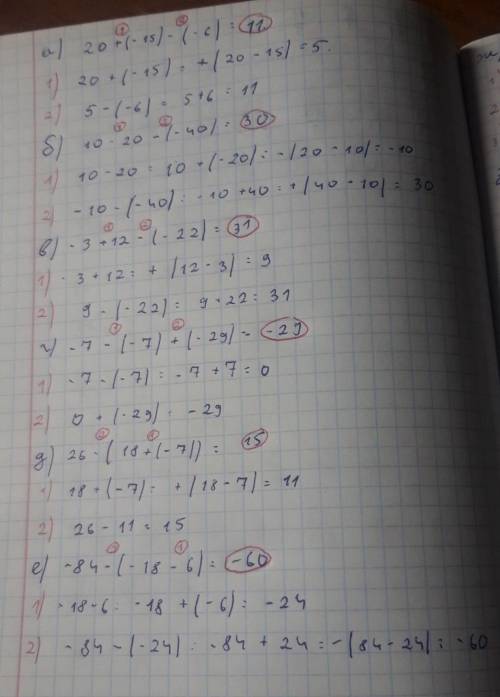 а) 20 + (-15) - (-6) = 11
1) 20 + (-15) = +(20 - 15) = 5.
2) 5 - (-6) = 5 + 6 = 11
б) 10 - 20 - (-40) = 30
1) 10 - 20 = 10 + (-20) = -(20 - 10) = -10
2) -10 - (-40) = -10 + 40 = +(40 - 10) = 30
в) -3 + 12 - (-22) = 31
1) -3 + 12 = +(12 - 3) = 9
2) 9 - (-22) = 9 + 22 = 31
г) -7 - (-7) + (-29) = -29
1) -7 - (-7) = -7 + 7 = 0
2) 0 + (-29) = -29
д) 26 - (18 + (-7)) = 15
1) 18 + (-7) = +(18 - 7) = 11
2) 26 - 11 = 15
е) -84 - (-18 - 6) = -60
1) -18 - 6 = -18 + (-6) = -24
2) -84 - (-24) = -84 + 24 = -(84 - 24) = -60